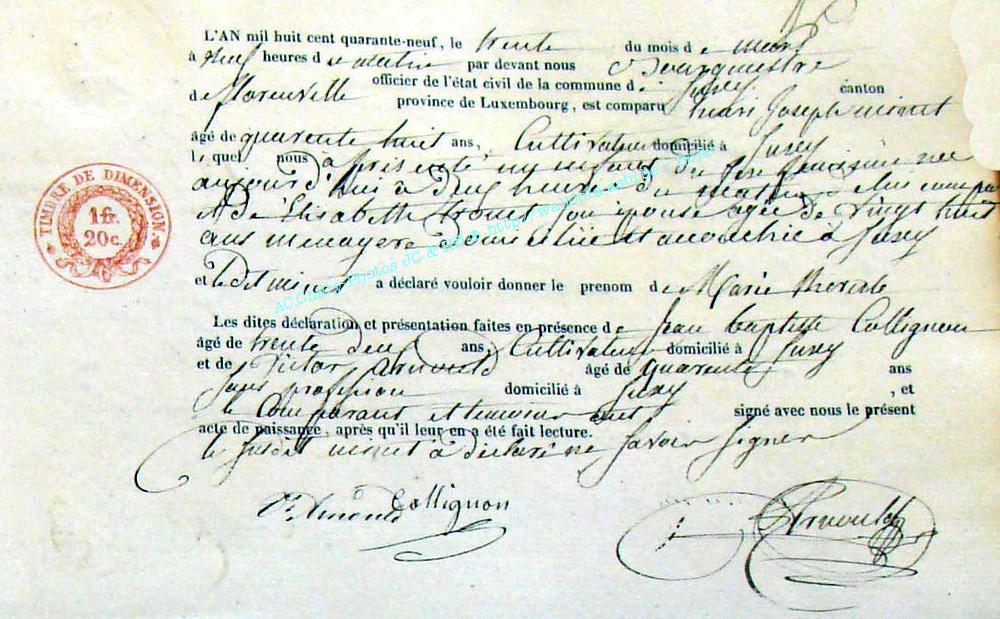 L'AN mil huit cent quarante-neuf, le trente du mois de mars
à neuf heures du matin par devant nous Bourguestre
officier de l'état civil de la commune de Suxy canton
de Florenville province de Luxembourg, est comparu henri Joseph minet
âgé de quarente huit ans, Cultivateur domicilié à Suxey
lequel nous a présenté un enfant du sexe feminine nee
aujourd'hui à deux heures du matin de lui comparant
et de Elisabette son épouse agée de vingt huit
ans menagere domiciliée et accouchée à Suxey
et ledit minet a déclaré vouloir donner le prenom de Marie therese
Les dites déclaration et présentation faites en présence de Jean baptiste Collignon
âgé de trente deux ans, Cultivateur domicilié à Suxey
et de Victor arnould âgé de quarente ans
sans profession domicilié à Suxey , et
le Comparant et temoins ont signé avec nous le présent
acte de naissance, après qu'il leur en a été fait lecture.
le susdit minet à declaré ne savoir signer
Collignon
V Arnould
Arnould
TIMBRE DE DIMENSION
1 fr.
20 c.